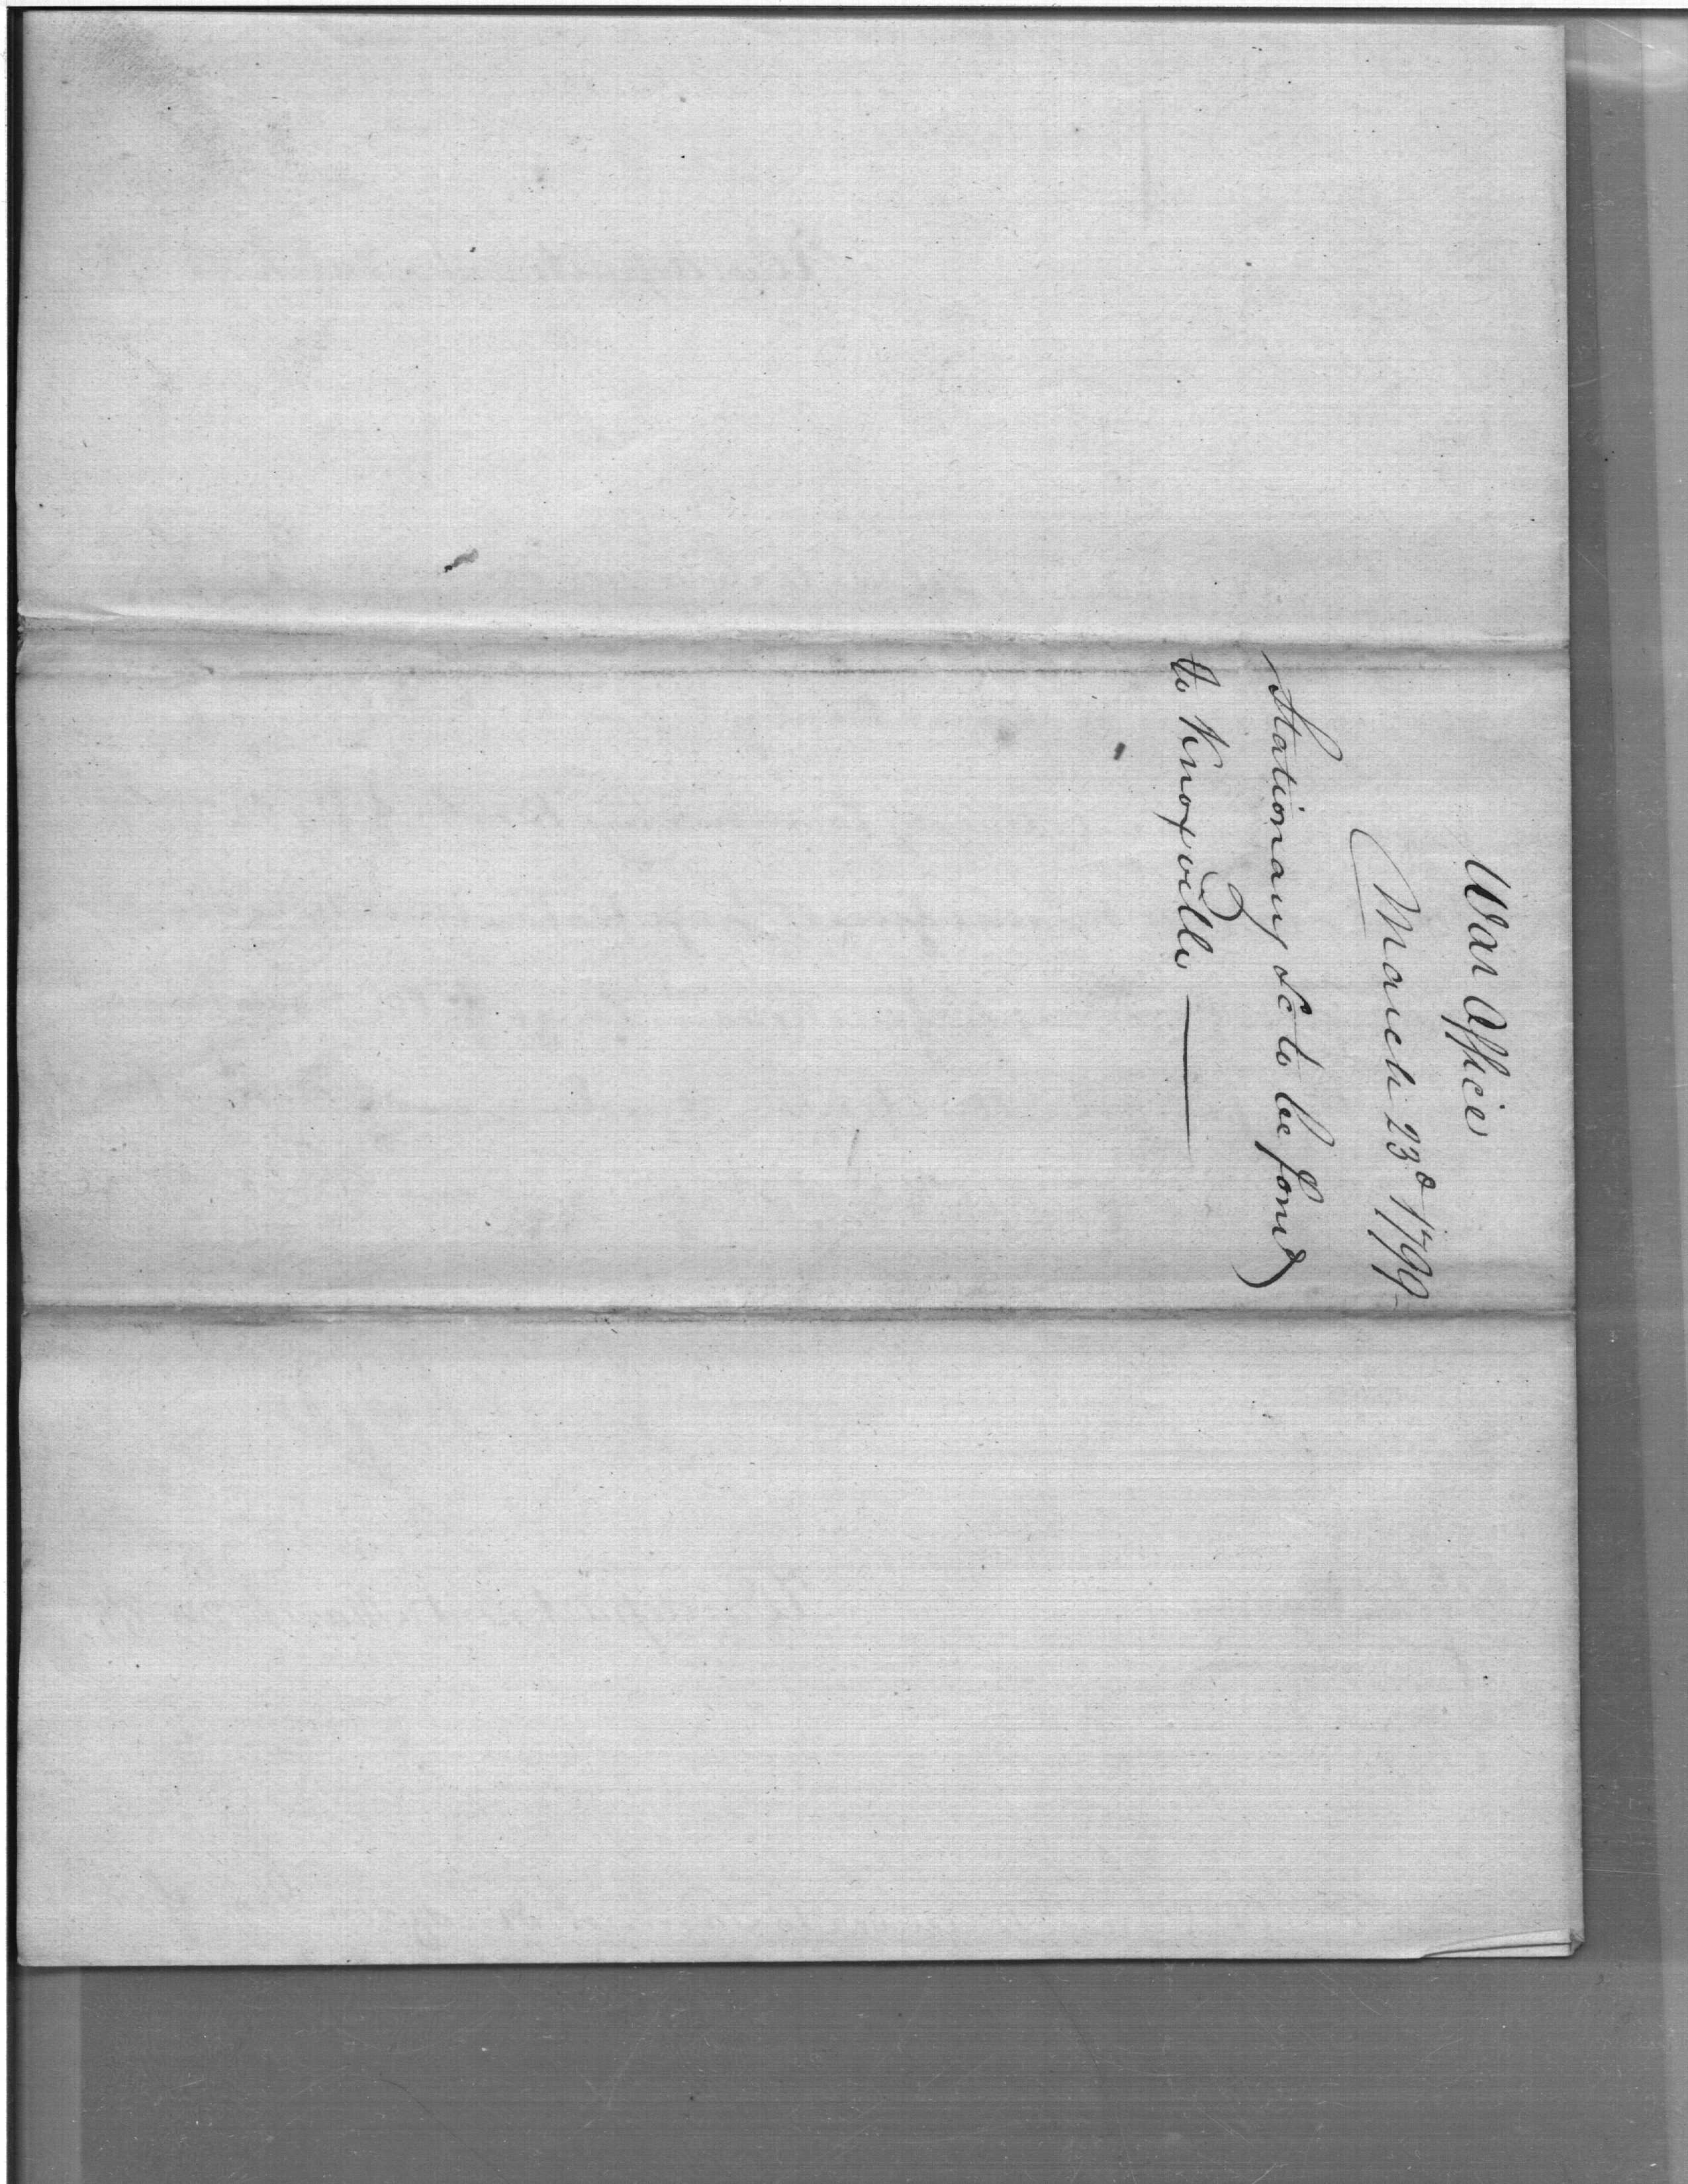 War Office
March 23d 1799
Stationary &c to be forwd
to Knoxville